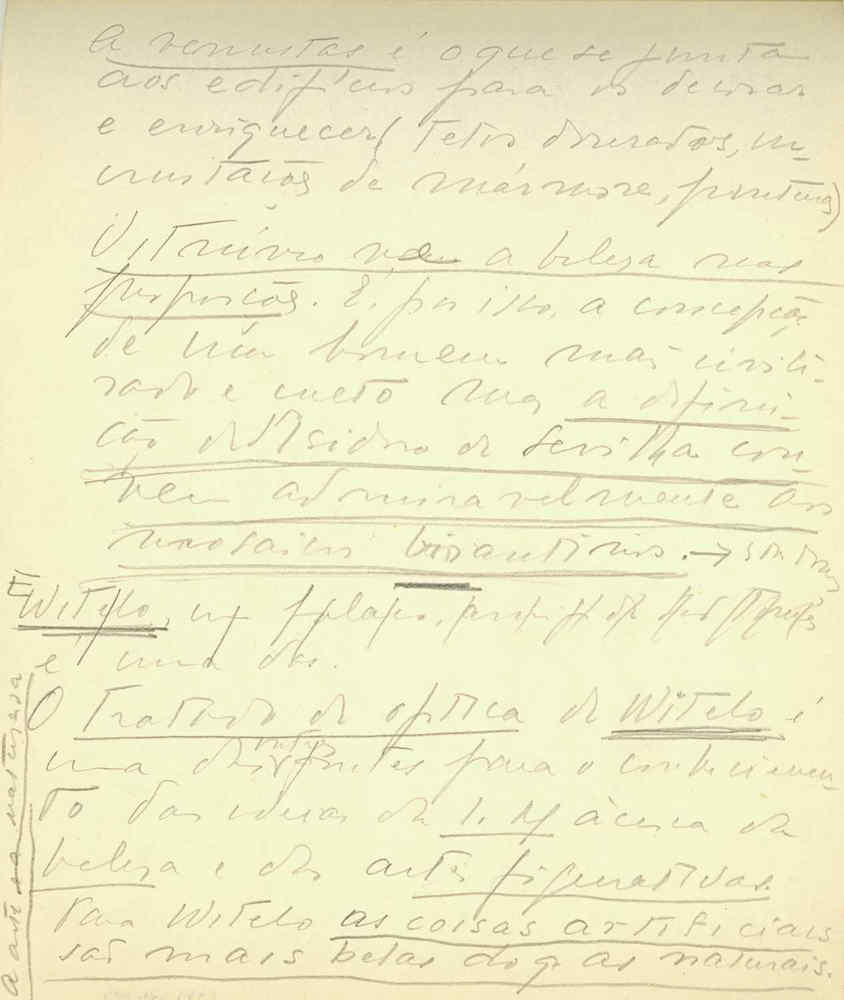 A venustas é o que se junta
aos edifícios para os decorar
e enriquecer (tetos dourados, in-
crustações de mármore, pinturas)
Vitrúvio vê a beleza nas
proporções. É, por isso, a concepção
de um homem mais civili-
zado e culto mas a defini-
ção de Isidro de Sevilha con-
vem admiravelmente aos
mosaicos bizantinos. →
Witelo, um
é uma das.
O Tratado de optica de Witelo é
uma das fontes para o conhecimen-
to das ideias da I. M. àcerca da
beleza e das artes figurativas.
Para Witelo as coisas artificiais
são mais belas do q as naturais.
a arte